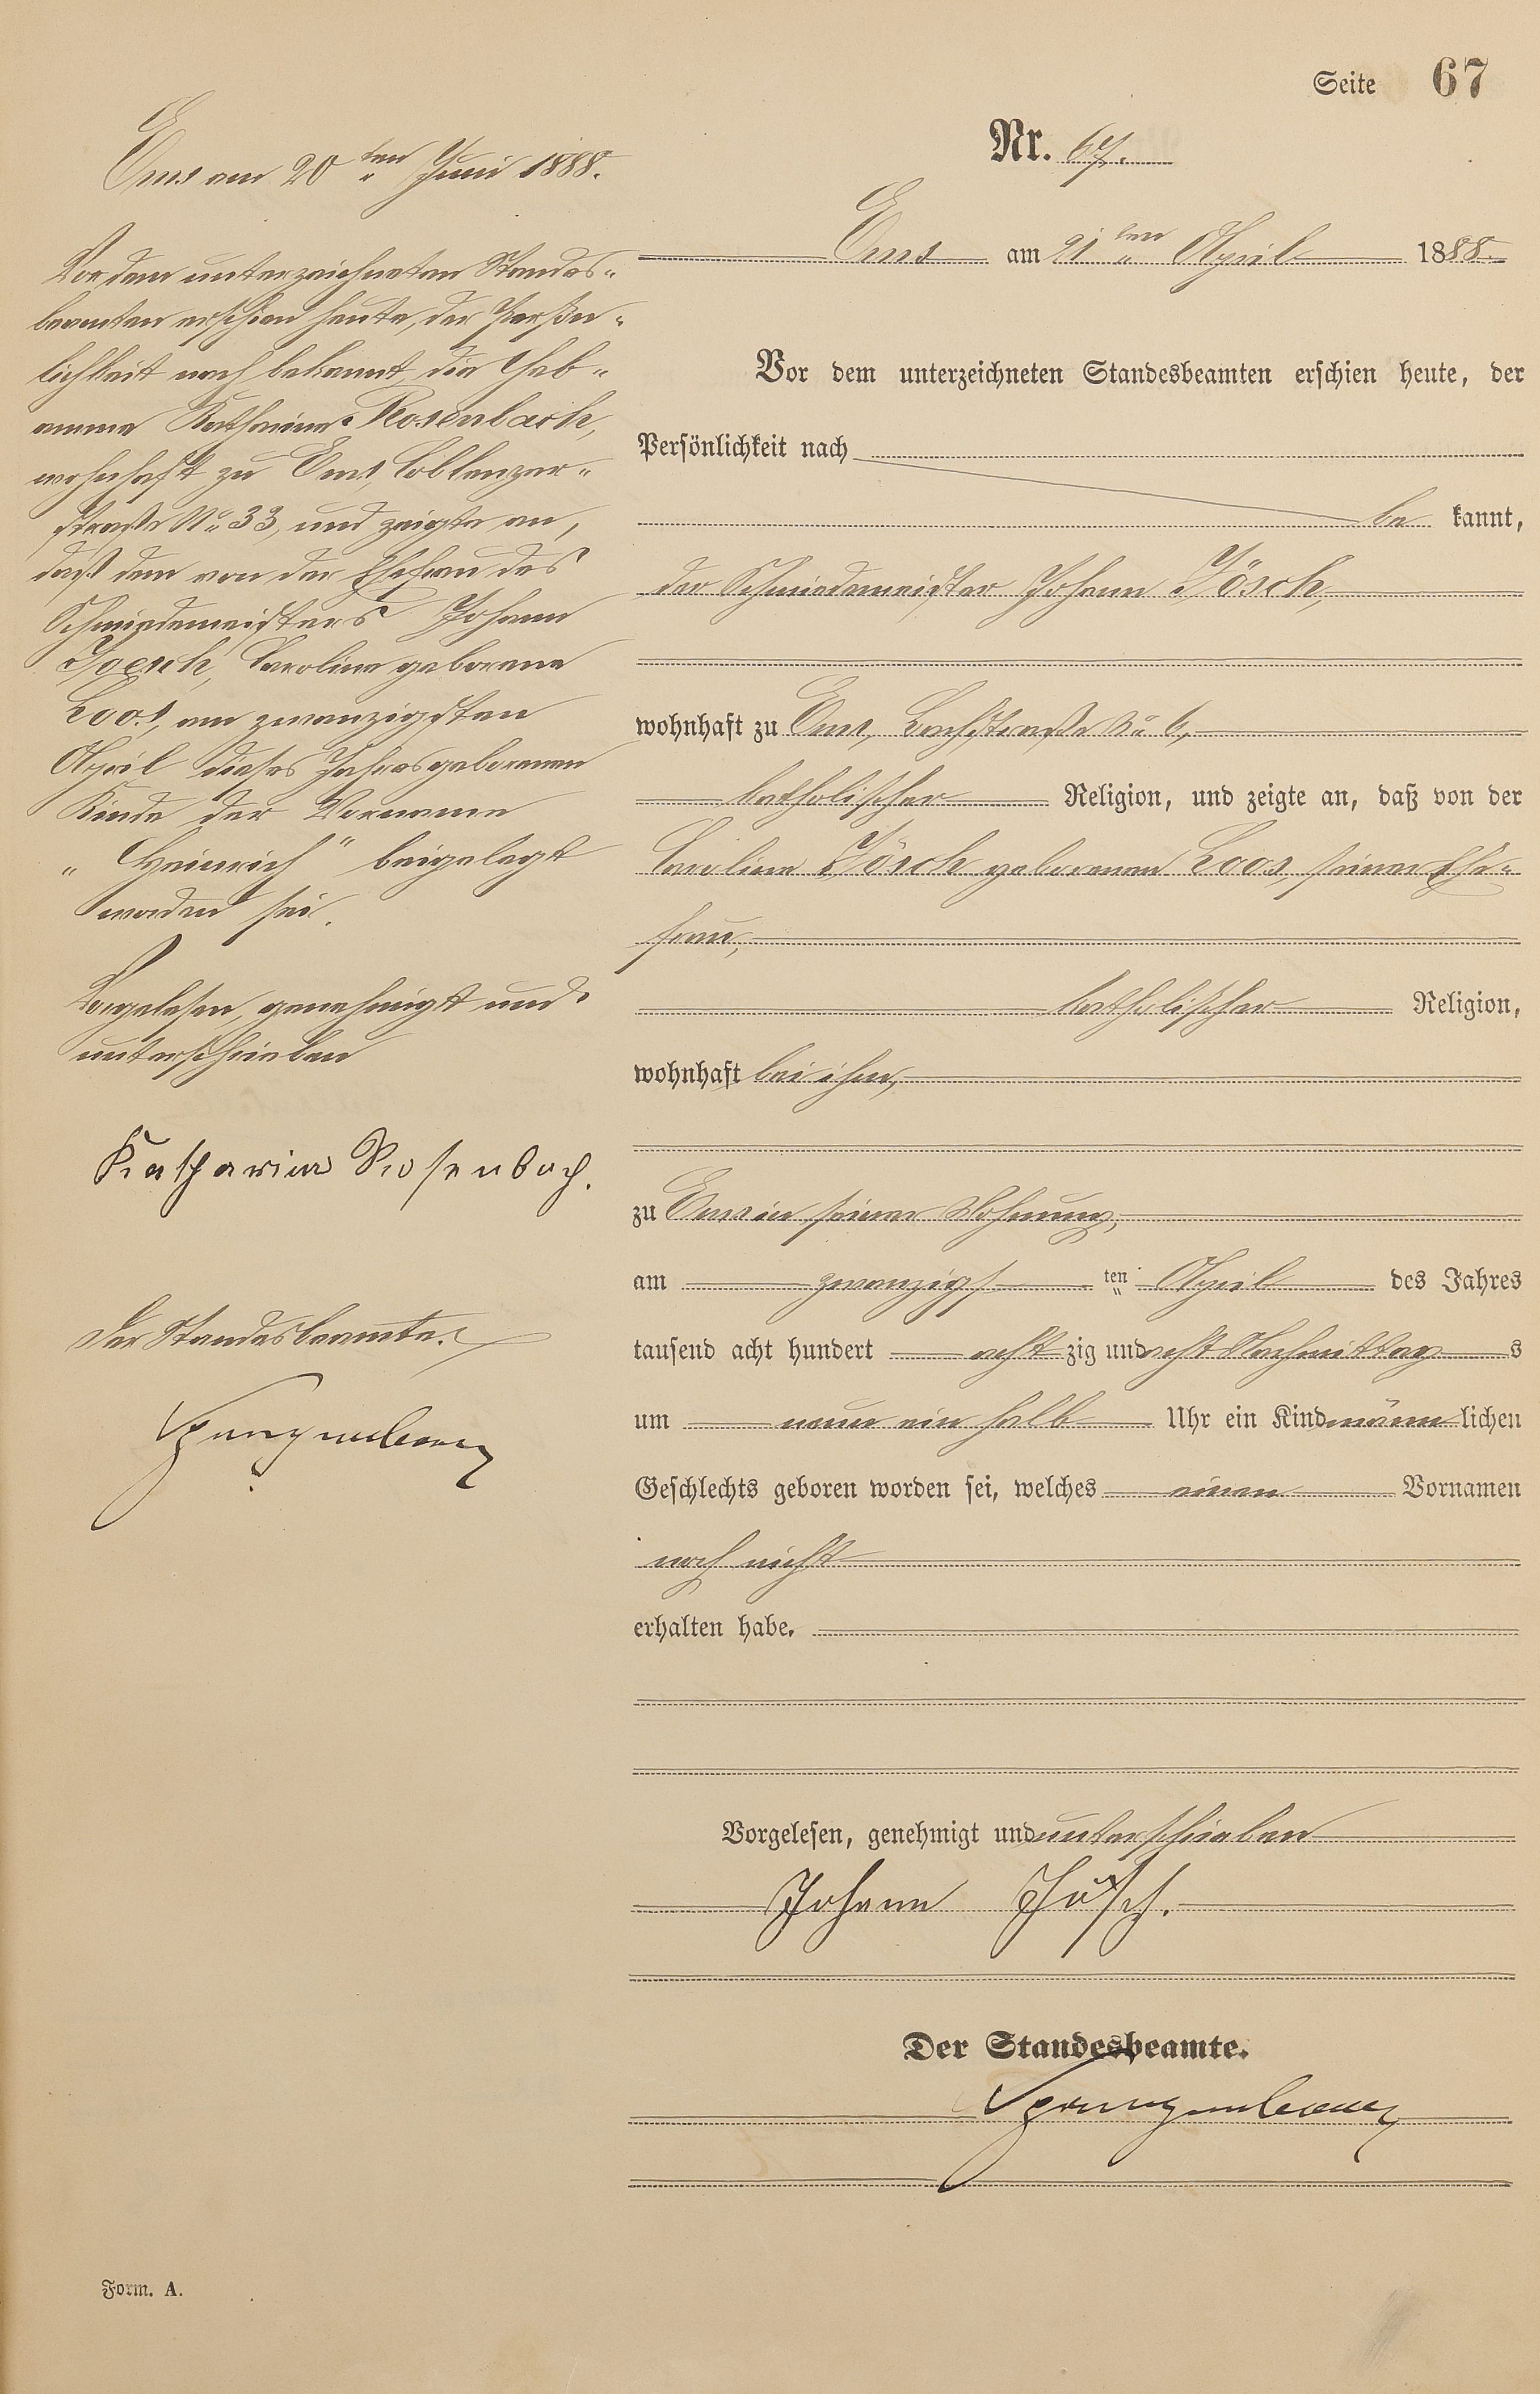 Seite 67
Nr. 67.
Ems am 21ten April 1888.
Vor dem unterzeichneten Standesbeamten erschien heute, der
Persönlichkeit nach
be kannt,
der Schmiedemeister Johann Jösch,
wohnhaft zu Ems, Bachstraße No 6,
katholischer Religion, und zeigte an, daß von der
Caroline Jösch geborenen Loos, seiner Ehe-
frau,
katholischer Religion,
wohnhaft bei ihm,
zu Ems in seiner Wohnung,
am zwanzigsten April des Jahres
tausend acht hundert acht zig und acht Nachmittags
um neun ein halb Uhr ein Kind männlichen
Geschlechts geboren worden sei, welches einen Vornamen
noch nicht
erhalten habe.
Vorgelesen, genehmigt und unterschrieben
Johann Jösch.
Der Standesbeamte.
Ems am 20ten Juni 1888.
Vor dem unterzeichneten Standes-
beamten erschien heute, der Persön-
lichkeit nach bekannt, die Heb-
amme Katharina Rosenbach,
wohnhaft zu Ems, Coblenzer-
straße No 33, und zeigte an,
daß dem von der Ehefrau des
Schmiedemeisters Johann
Joesch, Caroline geborene
Loos, am zwanzigsten
April dieses Jahres geborenen
Kinde der Vorname
"Heinrich" beigelegt
worden sei.
Vorgelesen, genehmigt und
unterschrieben
Katharina Rosenbach.
Der Standesbeamte.
Form. A.